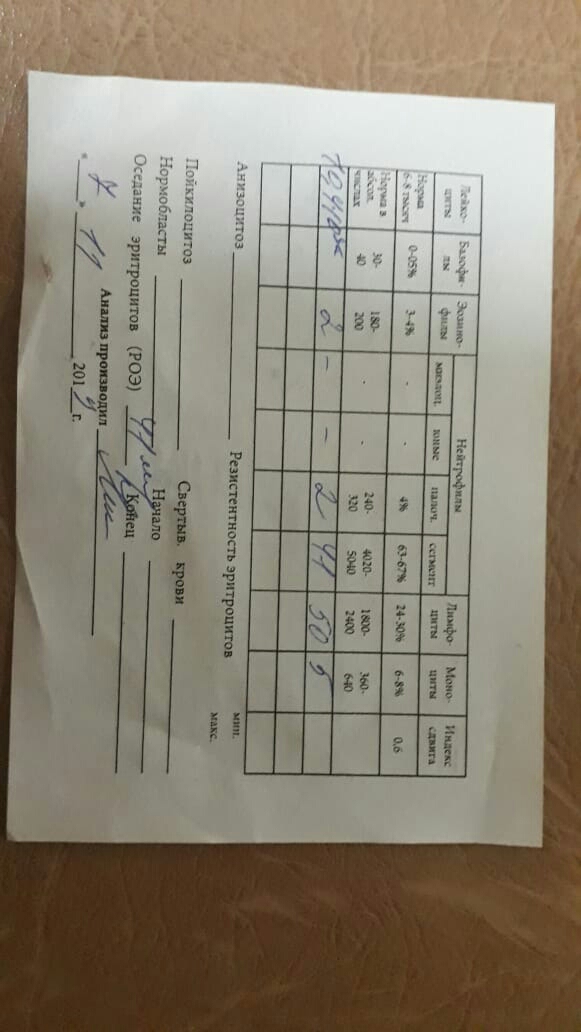 Лейко-
циты
Базофи-
лы
Эозино-
филы
Нейтрофилы
миэлоц.
юные
палоч.
сегмент
Лимфо-
циты
Моно-
циты
Индекс
сдвига
Норма
6-8 тысяч
0-05%
3-4%
-
-
4%
63-67%
24-30%
6-8%
0,6
Норма в
абсол.
числах
30-
40
180-
200
-
-
240-
320
4020-
5040
1800-
2400
360-
640
2 - - 2 41 50 5
Анизоцитоз Резистентность эритроцитов мин.
макс.
Пойкилоцитоз Свертыв. крови
Нормобласты Начало
Оседание эритроцитов (РОЭ) Конец
Анализ производил
" " 11 201 г.